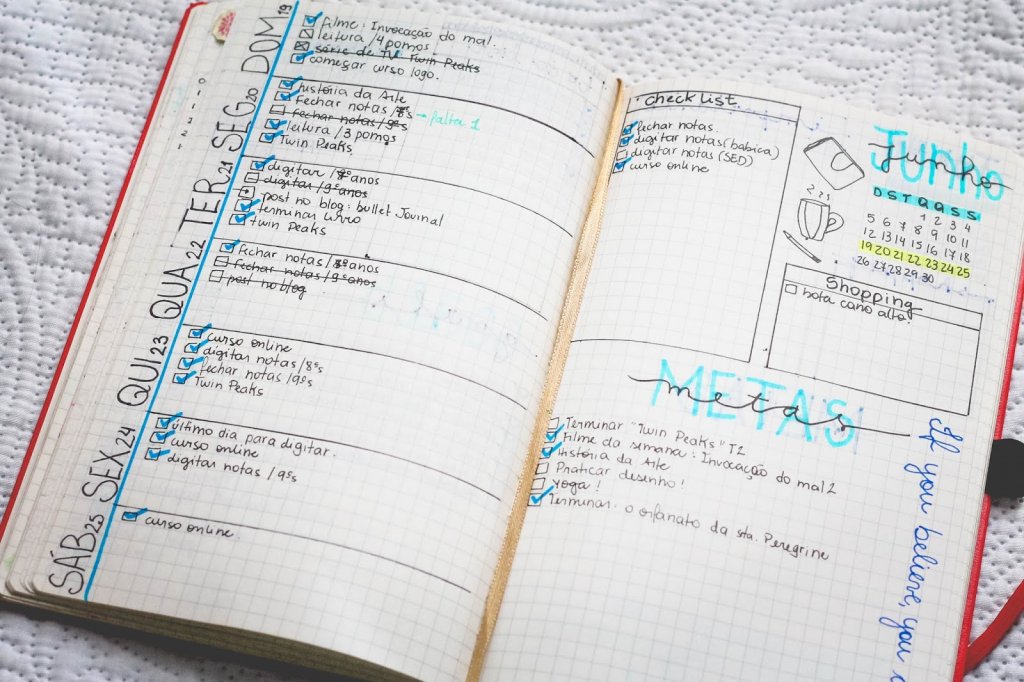 DOM 19
filme: Invocação do mal.
leitura / 4 pomos
série de TV Twin Peaks
começar curso logo.
SEG 20
história da Arte
Fechar notas / 8ºs → falta 1
fechar notas / 9ºs
leitura / 3 pomos
Twin Peaks
TER 21
digitar / 8º anos
digitar / 9º anos
post no blog: bullet Journal
terminar livro
twin Peaks
QUA 22
fechar notas / 8º anos
fechar notas / 9º anos
post no blog
QUI 23
curso online
digitar notas / 8ºs
fechar notas / 9ºs
Twin Peaks
SEX 24
último dia para digitar.
curso online
digitar notas / 9ºs
SÁB 25
curso online
checklist.
fechar notas.
digitar notas (babica)
digitar notas (SED)
curso online
Junho
junho
D S T Q Q S S
1 2 3 4
5 6 7 8 9 10 11
12 13 14 15 16 17 18
19 20 21 22 23 24 25
26 27 28 29 30
Shopping
bota cano alto!
METAS
metas
Terminar "Twin Peaks" T2
Filme da semana: Invocação do mal 2
História da Arte
Praticar desenho!
Yoga!
Terminar: o orfanato da sta. Peregrine
If you believe, you